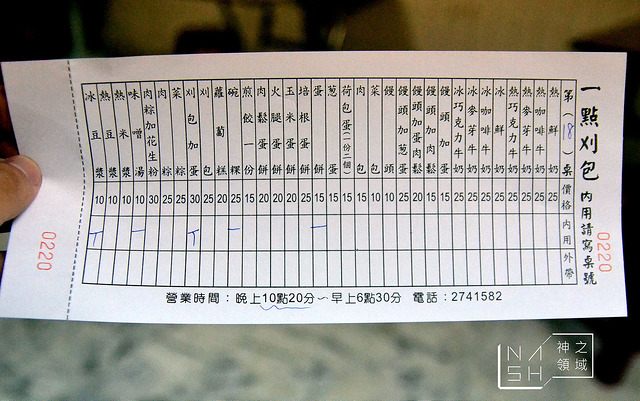 一點刈包 內用請寫桌號
0220
第(18)桌 價格 內用 外帶
熱鮮奶 25
熱咖啡牛奶 25
熱麥芽牛奶 25
熱巧克力牛奶 25
冰鮮奶 25
冰咖啡牛奶 25
冰麥芽牛奶 25
冰巧克力牛奶 25
饅頭加蛋
饅頭加肉鬆
饅頭加蛋肉鬆
饅頭加蔥蛋
饅頭 10
菜包 10
肉包
荷包蛋(一份二個) 15
蛋餅 15
培根蛋餅 20
玉米蛋餅 20
火腿蛋餅 20
肉鬆蛋餅 20
煎餃一份 15
碗粿 25
蘿蔔糕 20
刈包 25
刈包加蛋 30
菜粽 25
肉粽 25
肉粽加花生粉 30
味噌湯 10
熱米漿 10
熱豆漿 10
冰豆漿 10
營業時間：晚上10點20分~早上6點30分 電話：2741582
0220
NASH 神之領域